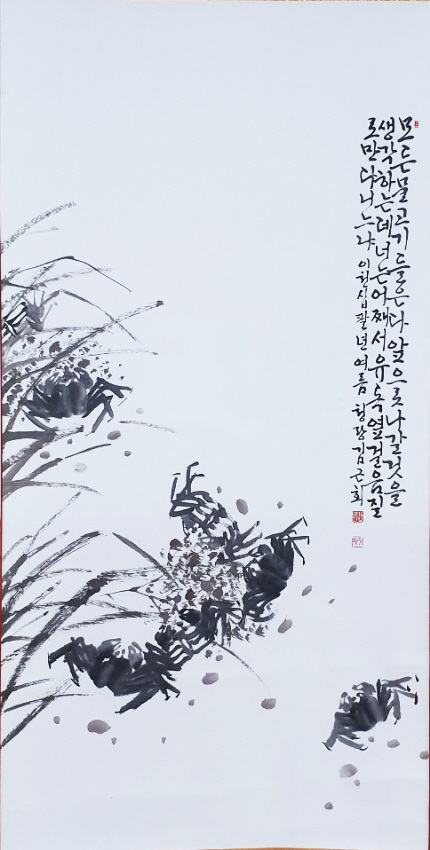 모든물고기들은다앞으로나갈것을
생각하는데너는어째서유독옆걸음질
로만다니느냐 이천십팔년여름 김근회